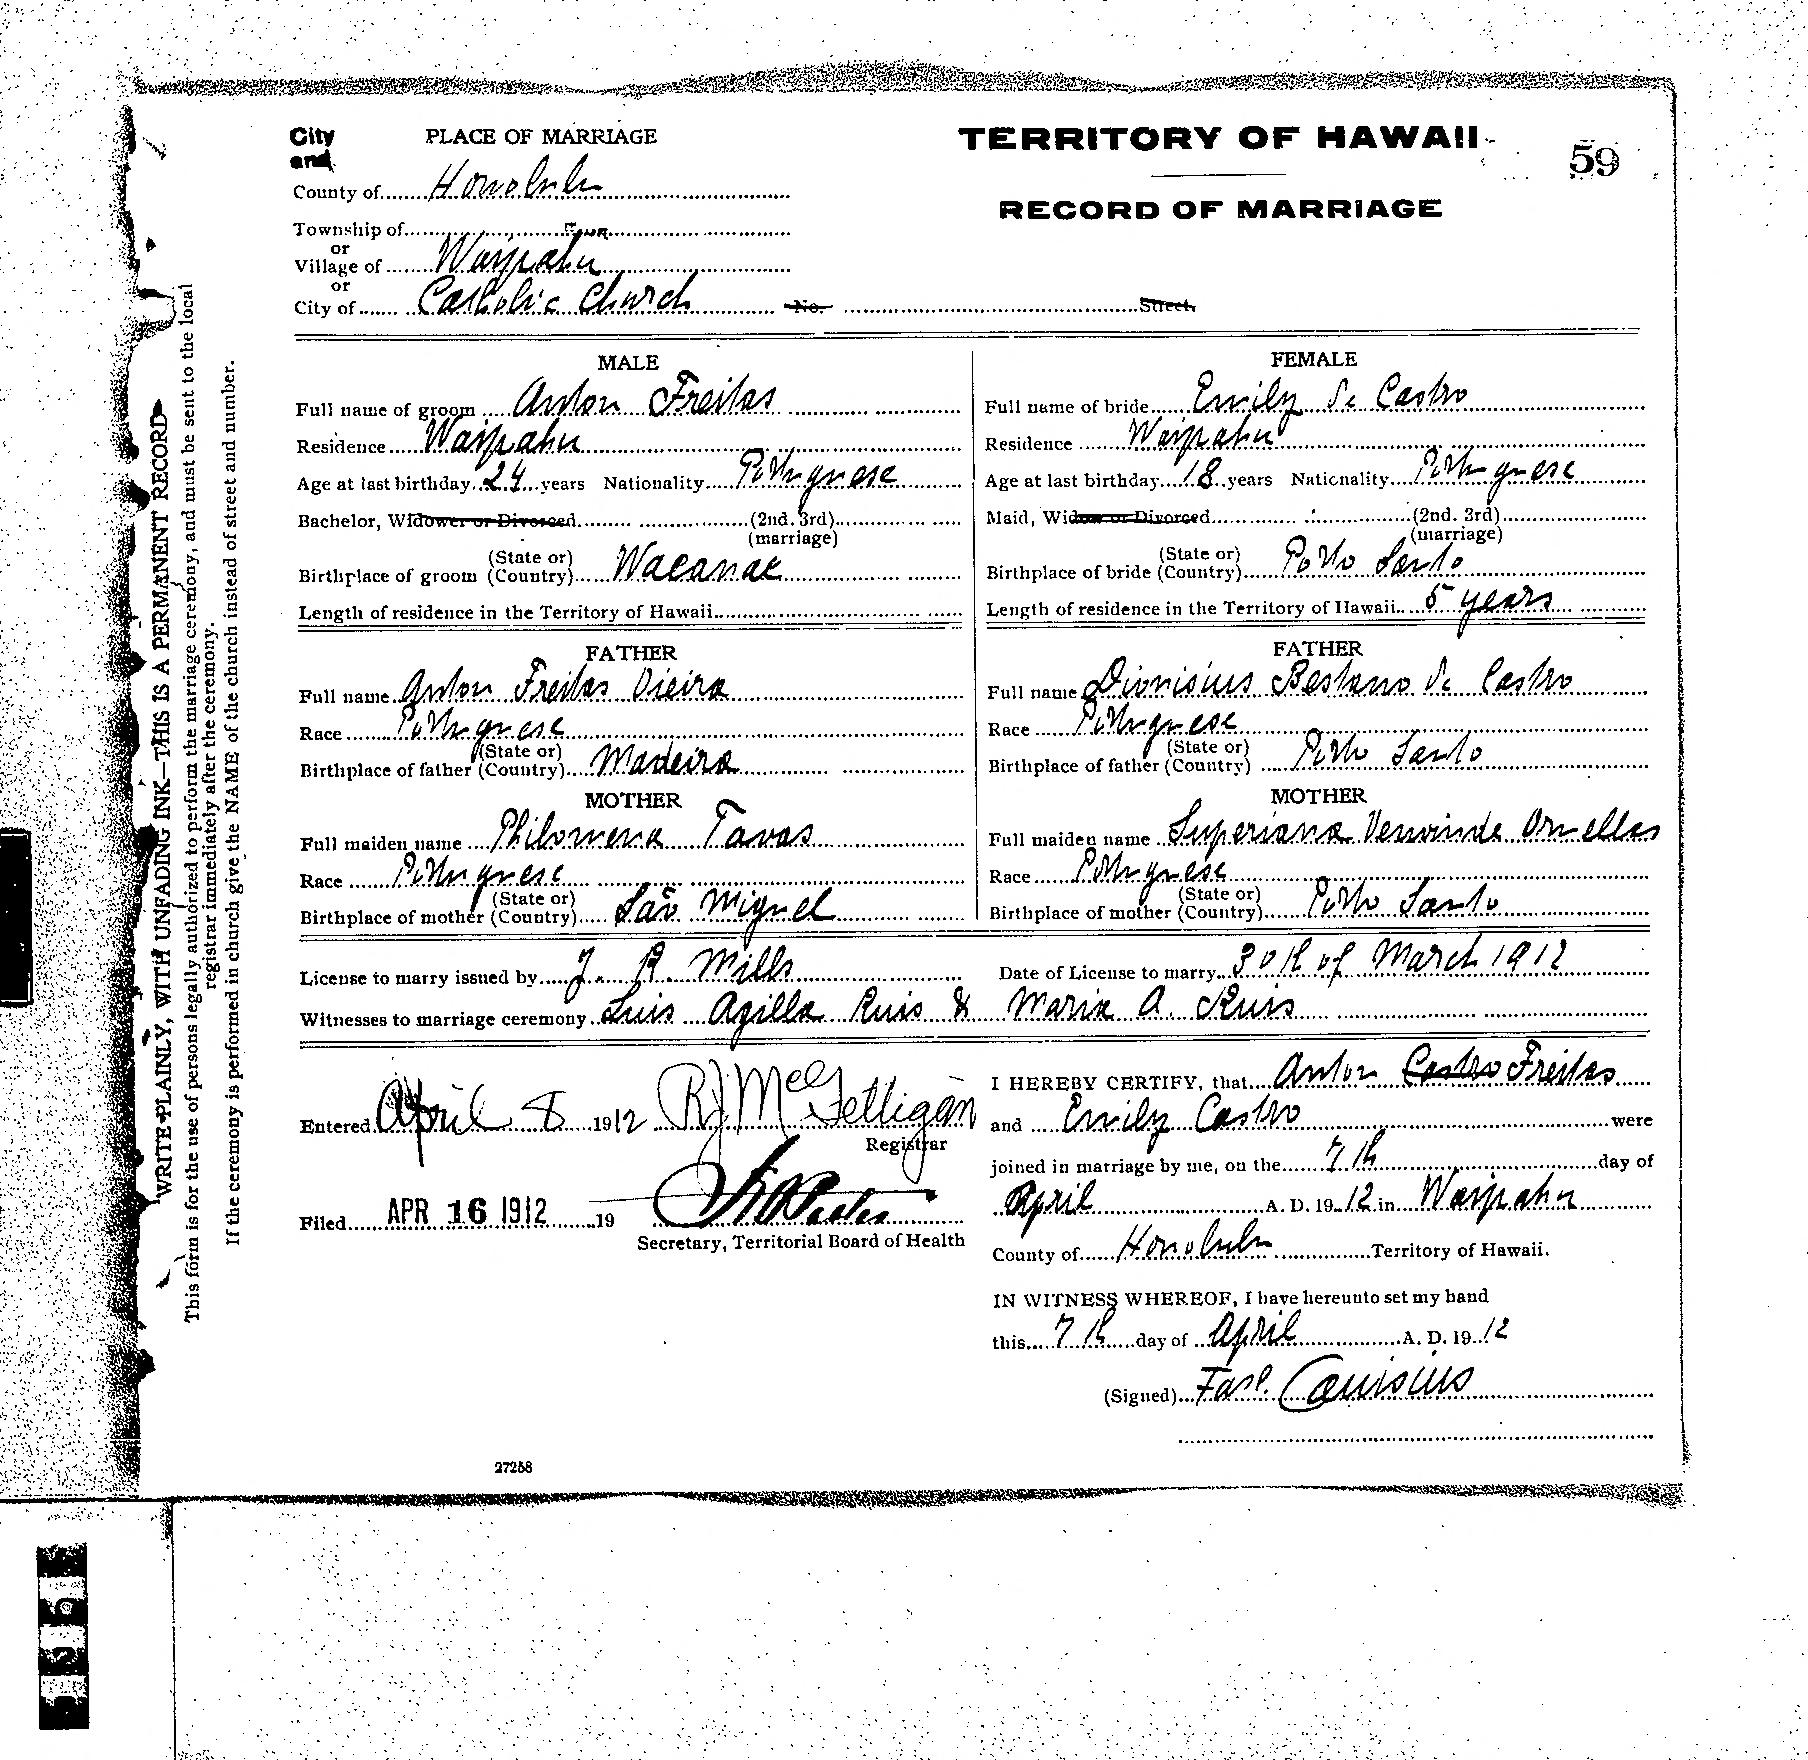 City PLACE OF MARRIAGE TERRITORY OF HAWAII 59
and
County of Honolulu
RECORD OF MARRIAGE
Township of
or
Village of Waipahu
or
City of Catholic Church No. Street.
WRITE PLAINLY, WITH UNFADING INK—THIS IS A PERMANENT RECORD
This form is for the use of persons legally authorized to perform the marriage ceremony, and must be sent to the local
registrar immediately after the ceremony.
If the ceremony is performed in church give the NAME of the church instead of street and number.
MALE
Full name of groom Anton Freitas
Residence Waipahu
Age at last birthday 24 years Nationality Portuguese
Bachelor, Widower or Divorced (2nd. 3rd)
(marriage)
(State or)
Birthplace of groom (Country) Waeanae
Length of residence in the Territory of Hawaii
FATHER
Full name Anton Freitas Vieira
Race Portuguese
(State or)
Birthplace of father (Country) Madeira
MOTHER
Full maiden name Philomena Tavas
Race Portuguese
(State or)
Birthplace of mother (Country) São Miguel
FEMALE
Full name of bride Emily de Castro
Residence Waipahu
Age at last birthday 18 years Nationality Portuguese
Maid, Widow or Divorced (2nd. 3rd)
(marriage)
(State or)
Birthplace of bride (Country) Porto Santo
Length of residence in the Territory of Hawaii 5 years
FATHER
Full name Dionisius Bestano de Castro
Race Portuguese
(State or)
Birthplace of father (Country) Porto Santo
MOTHER
Full maiden name Superiana Vervinde Ornellas
Race Portuguese
(State or)
Birthplace of mother (Country) Porto Santo
License to marry issued by J. R. Mills Date of License to marry 30th of March 1912
Witnesses to marriage ceremony Luis Agilla Ruis & Maria A. Ruis
Entered April 8 1912 R J McGettigan
Registrar
Filed APR 16 1912 19
Secretary, Territorial Board of Health
I HEREBY CERTIFY, that Anton Castro Freitas
and Emily Castro were
joined in marriage by me, on the 7th day of
April A. D. 1912 in Waipahu
County of Honolulu Territory of Hawaii.
IN WITNESS WHEREOF, I have hereunto set my hand
this 7th day of April A. D. 1912
(Signed) Canisius
27258